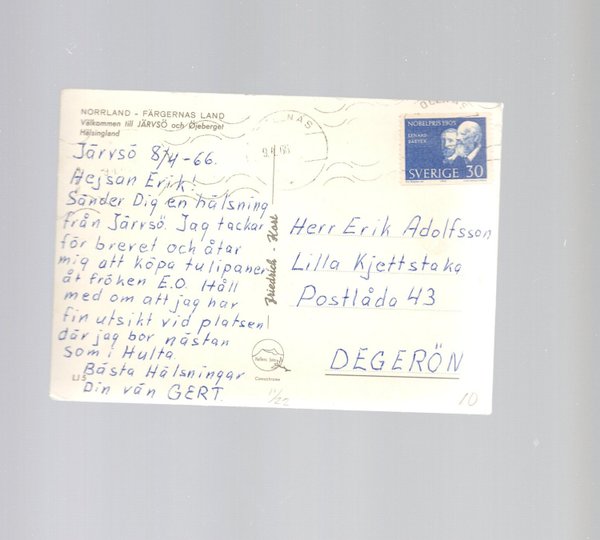 NORRLAND - FÄRGERNAS LAND
Välkommen till JÄRVSÖ och Öjeberget
Hälsingland
Järvsö 8/4-66.
Hejsan Erik!
Sänder Dig en hälsning
från Järvsö. Jag tackar
för brevet och åtar
mig att köpa tulipaner
åt fröken E.O. Håll
med om att jag har
fin utsikt vid platsen
där jag bor nästan
som i Hulta.
Bästa Hälsningar
Din vän GERT.
LJ 5
Friedrich-Kort
11/22
NOBELPRIS 1905
LENARD
BAEYER
SVERIGE 30
Herr Erik Adolfsson
Lilla Kjettstaka
Postlåda 43
DEGERÖN
10